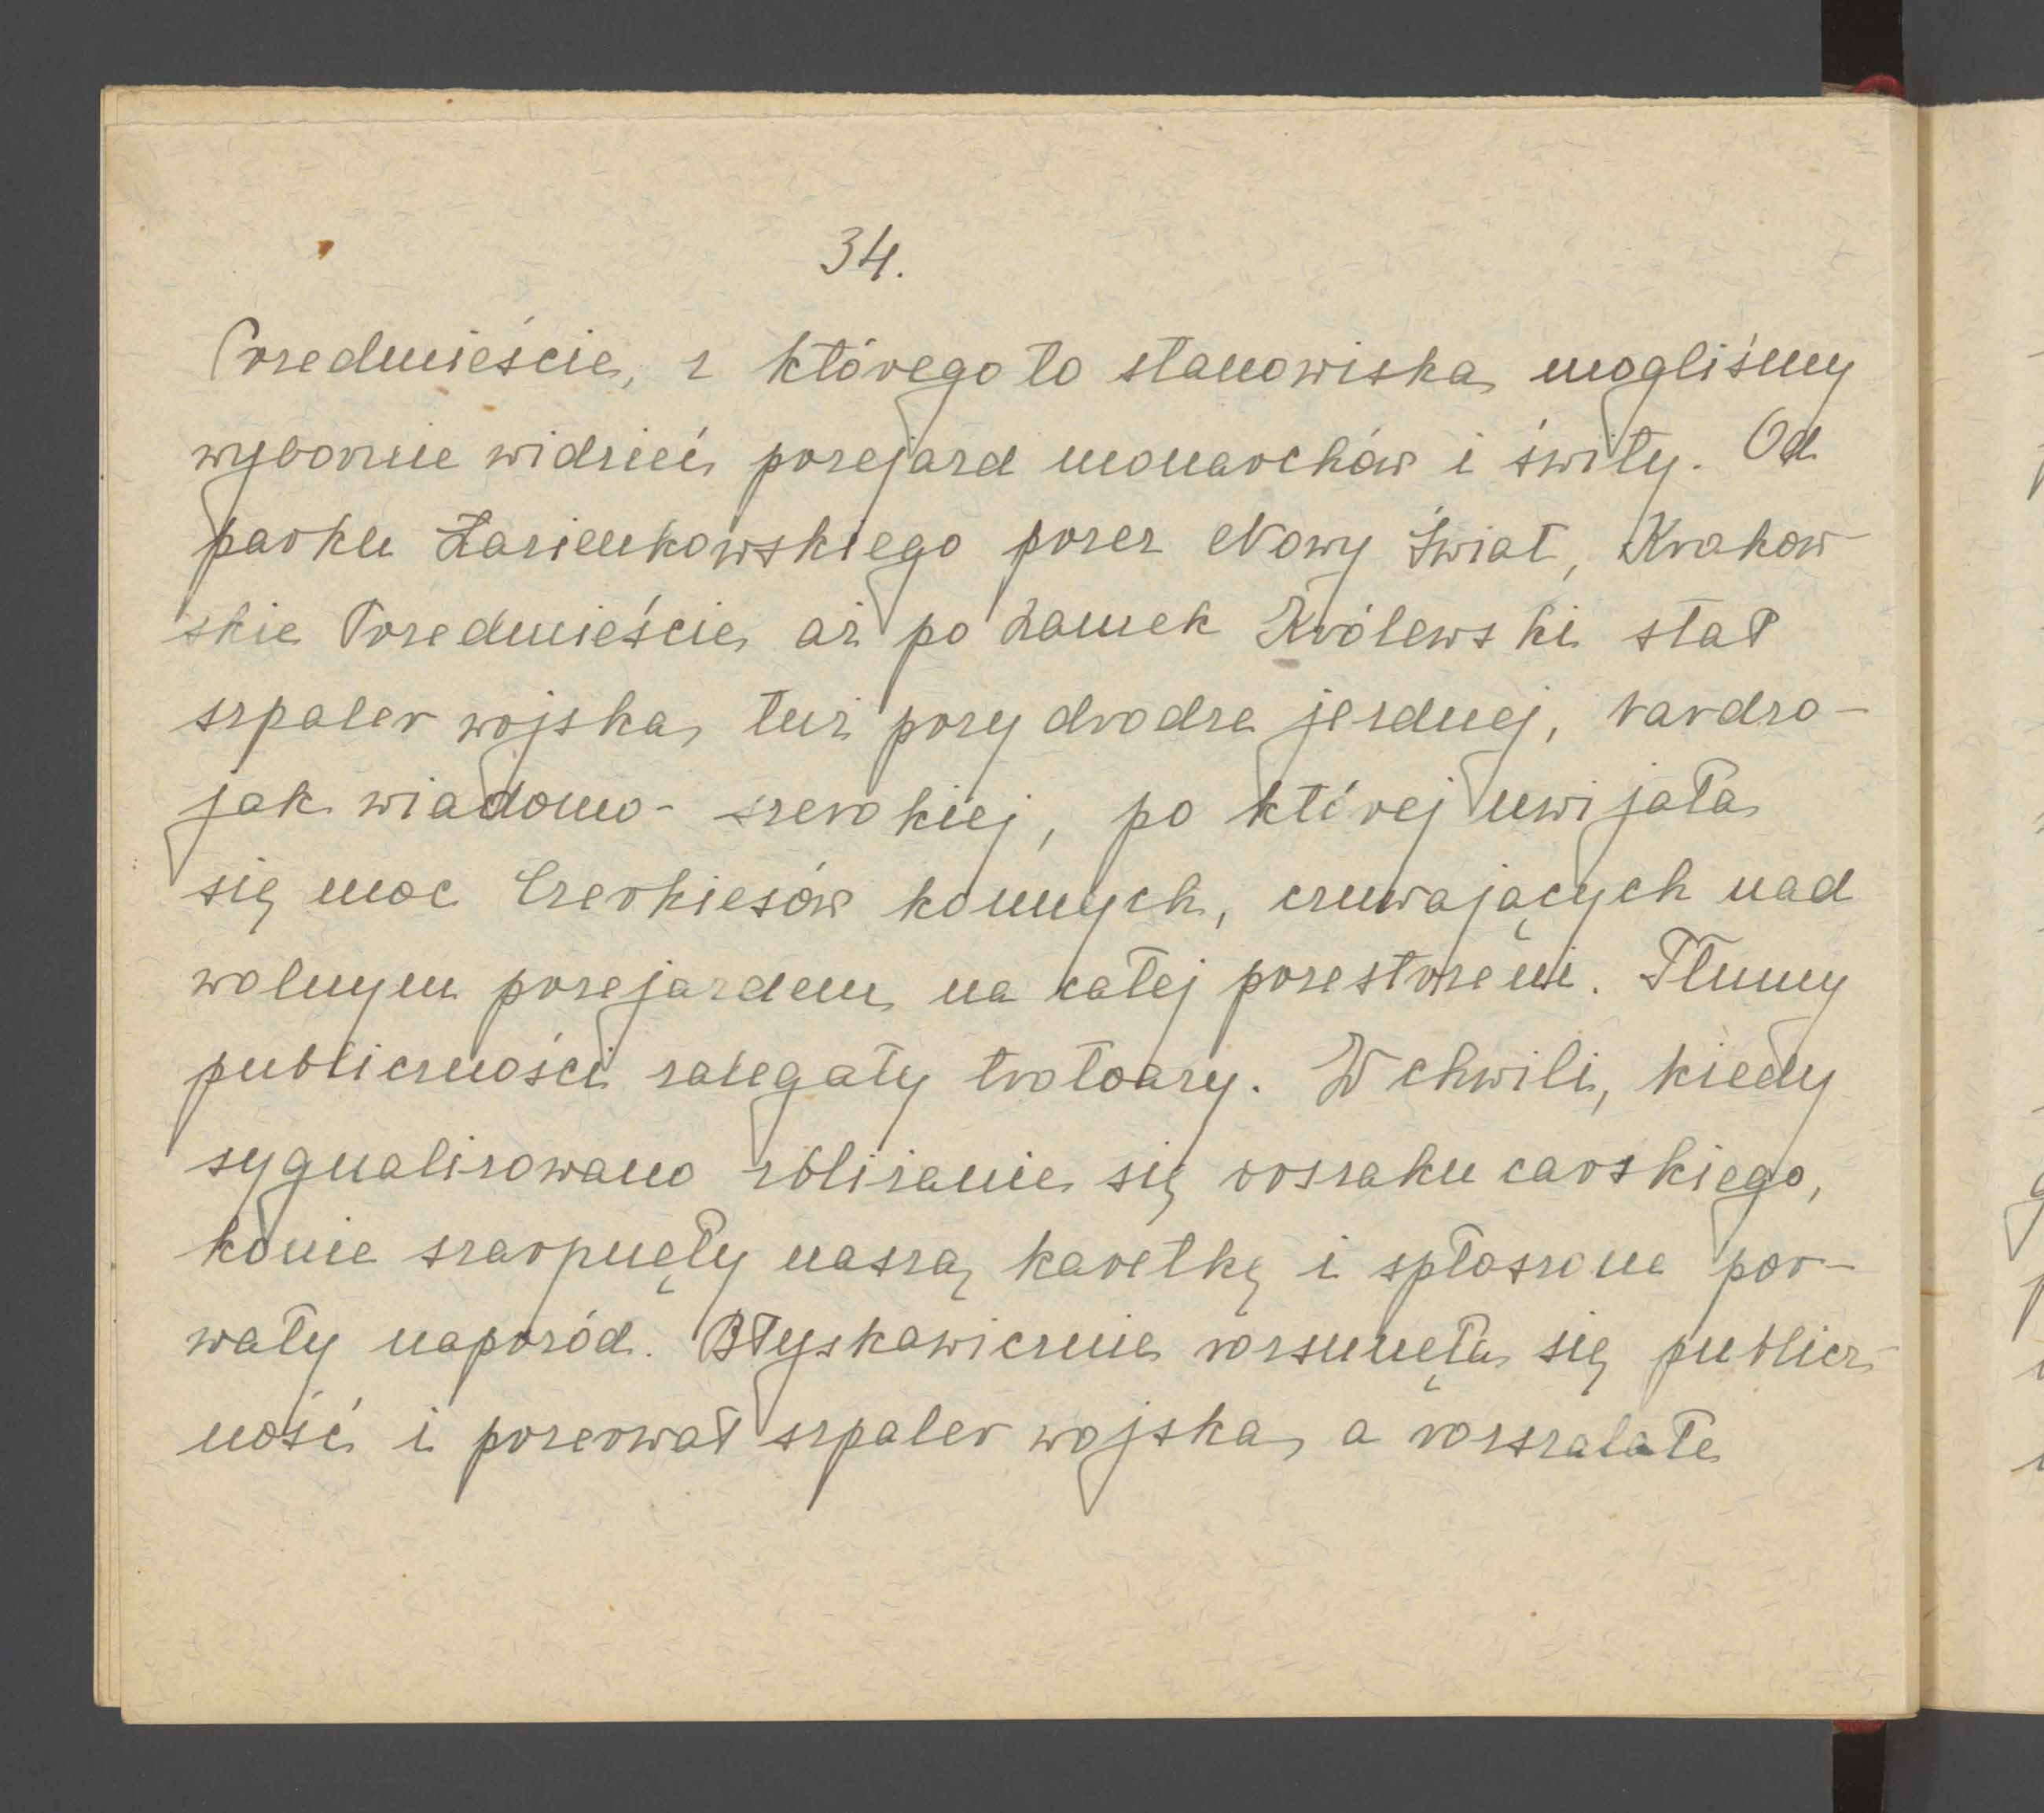 34.
Przedmieście, z którego to stanowiska mogliśmy
wybornie widzieć przejazd monarchów i świty. Od
parku Łazienkowskiego przez Nowy Świat, Krakow-
skie Przedmieście aż po Zamek Królewski stał
szpaler wojska, tuż przy drodze jezdnej, bardzo-
jak wiadomo- szerokiej, po której uwijała
się moc Czerkiesów konnych, czuwających nad
wolnym przejazdem na całej przestrzeni. Tłumy
publiczności zalegały trotoary. W chwili, kiedy
sygnalizowano zbliżanie się orszaku carskiego,
konie szarpnęły naszą karetkę i spłoszone por-
wały naprzód. Błyskawicznie rozsunęła się publicz-
ność i przerwał szpaler wojska, a rozszalałe